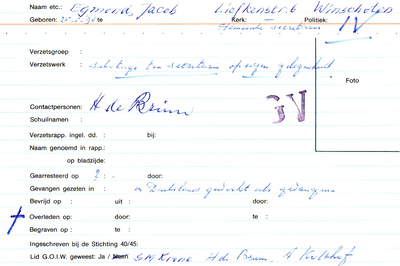 Naam etc.: Egmond, Jacob Liefkenstr. 6 Winschoten
Geboren: te Kerk: Politiek:
Gemeente secretarie IV
Verzetsgroep :
Verzetswerk : sabotage ten secretarie op eigen gelegenheid
Foto
Contactpersonen: H de Bruin GV
Schuilnamen :
Verzetsrapp. ingel. dd. : bij:
Naam genoemd in rapp.:
op bladzijde:
Gearresteerd op : ? - door:
Gevangen gezeten in : in Duitsland gewerkt als gevangene
Bevrijd op : uit : door:
Overleden op: door: te :
Begraven op : te :
Ingeschreven bij de Stichting 40/45:
Lid G.O.I.W. geweest: Ja / Neen H de Bruin